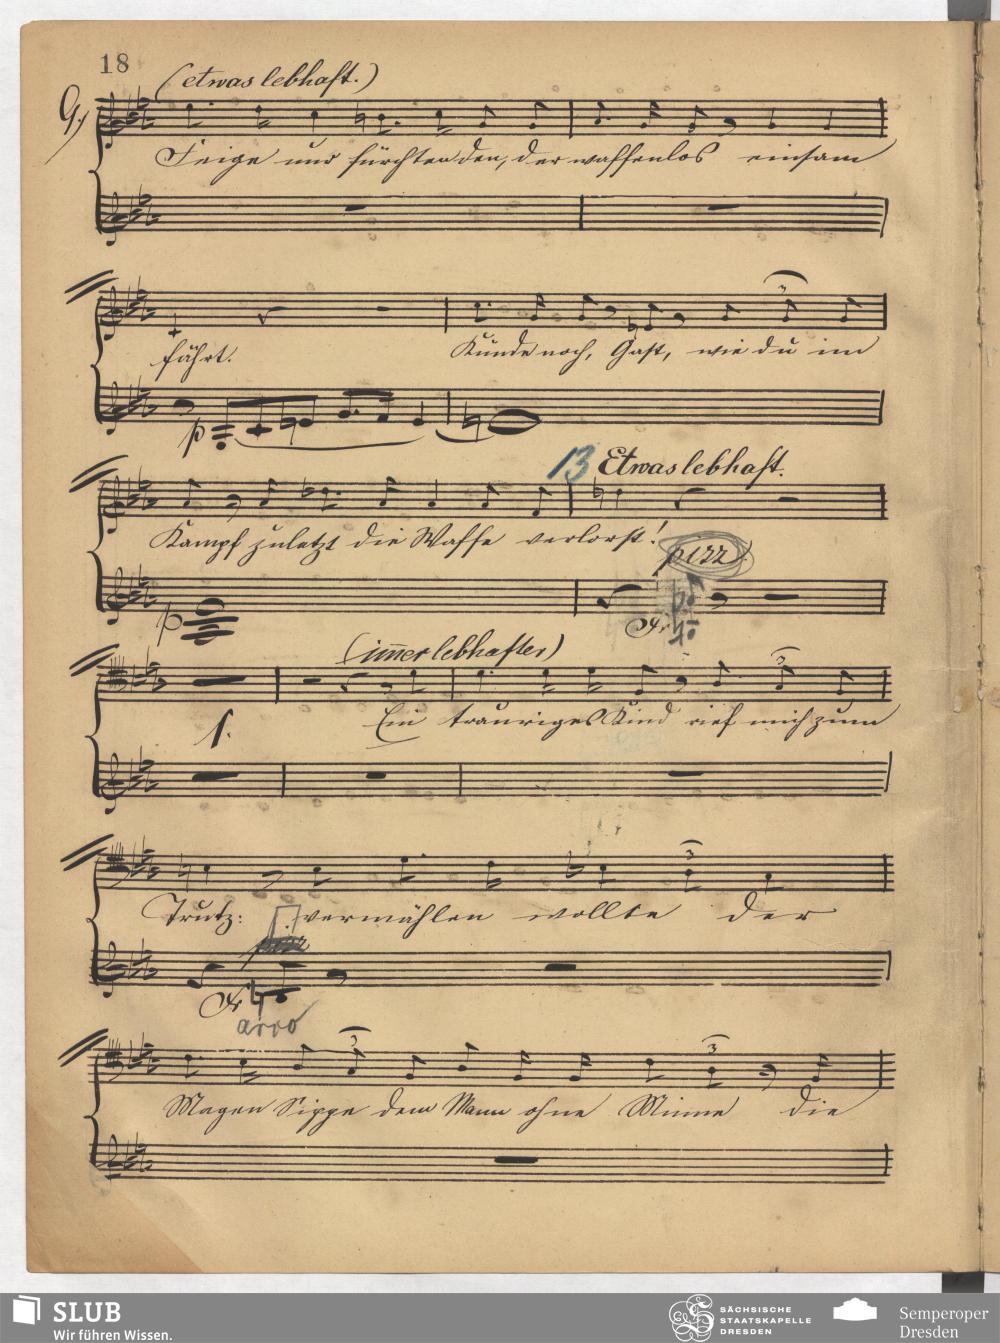 18
(etwas lebhaft.)
G.)
Feige nur fürchten den, der waffenlos einsam
fährt. Künde noch, Gast, wie du im
p
13 Etwas lebhaft.
Kampf zuletzt die Waffe verlorst!
pizz.
p
(immer lebhafter)
Ein trauriges Kind rief mich zum
1.
Trutz: vermählen wollte der
pizz
arco
3
Magen Sippe dem Mann ohne Minne die
SLUB
Wir führen Wissen.
SÄCHSISCHE
STAATSKAPELLE
DRESDEN
Semperoper
Dresden